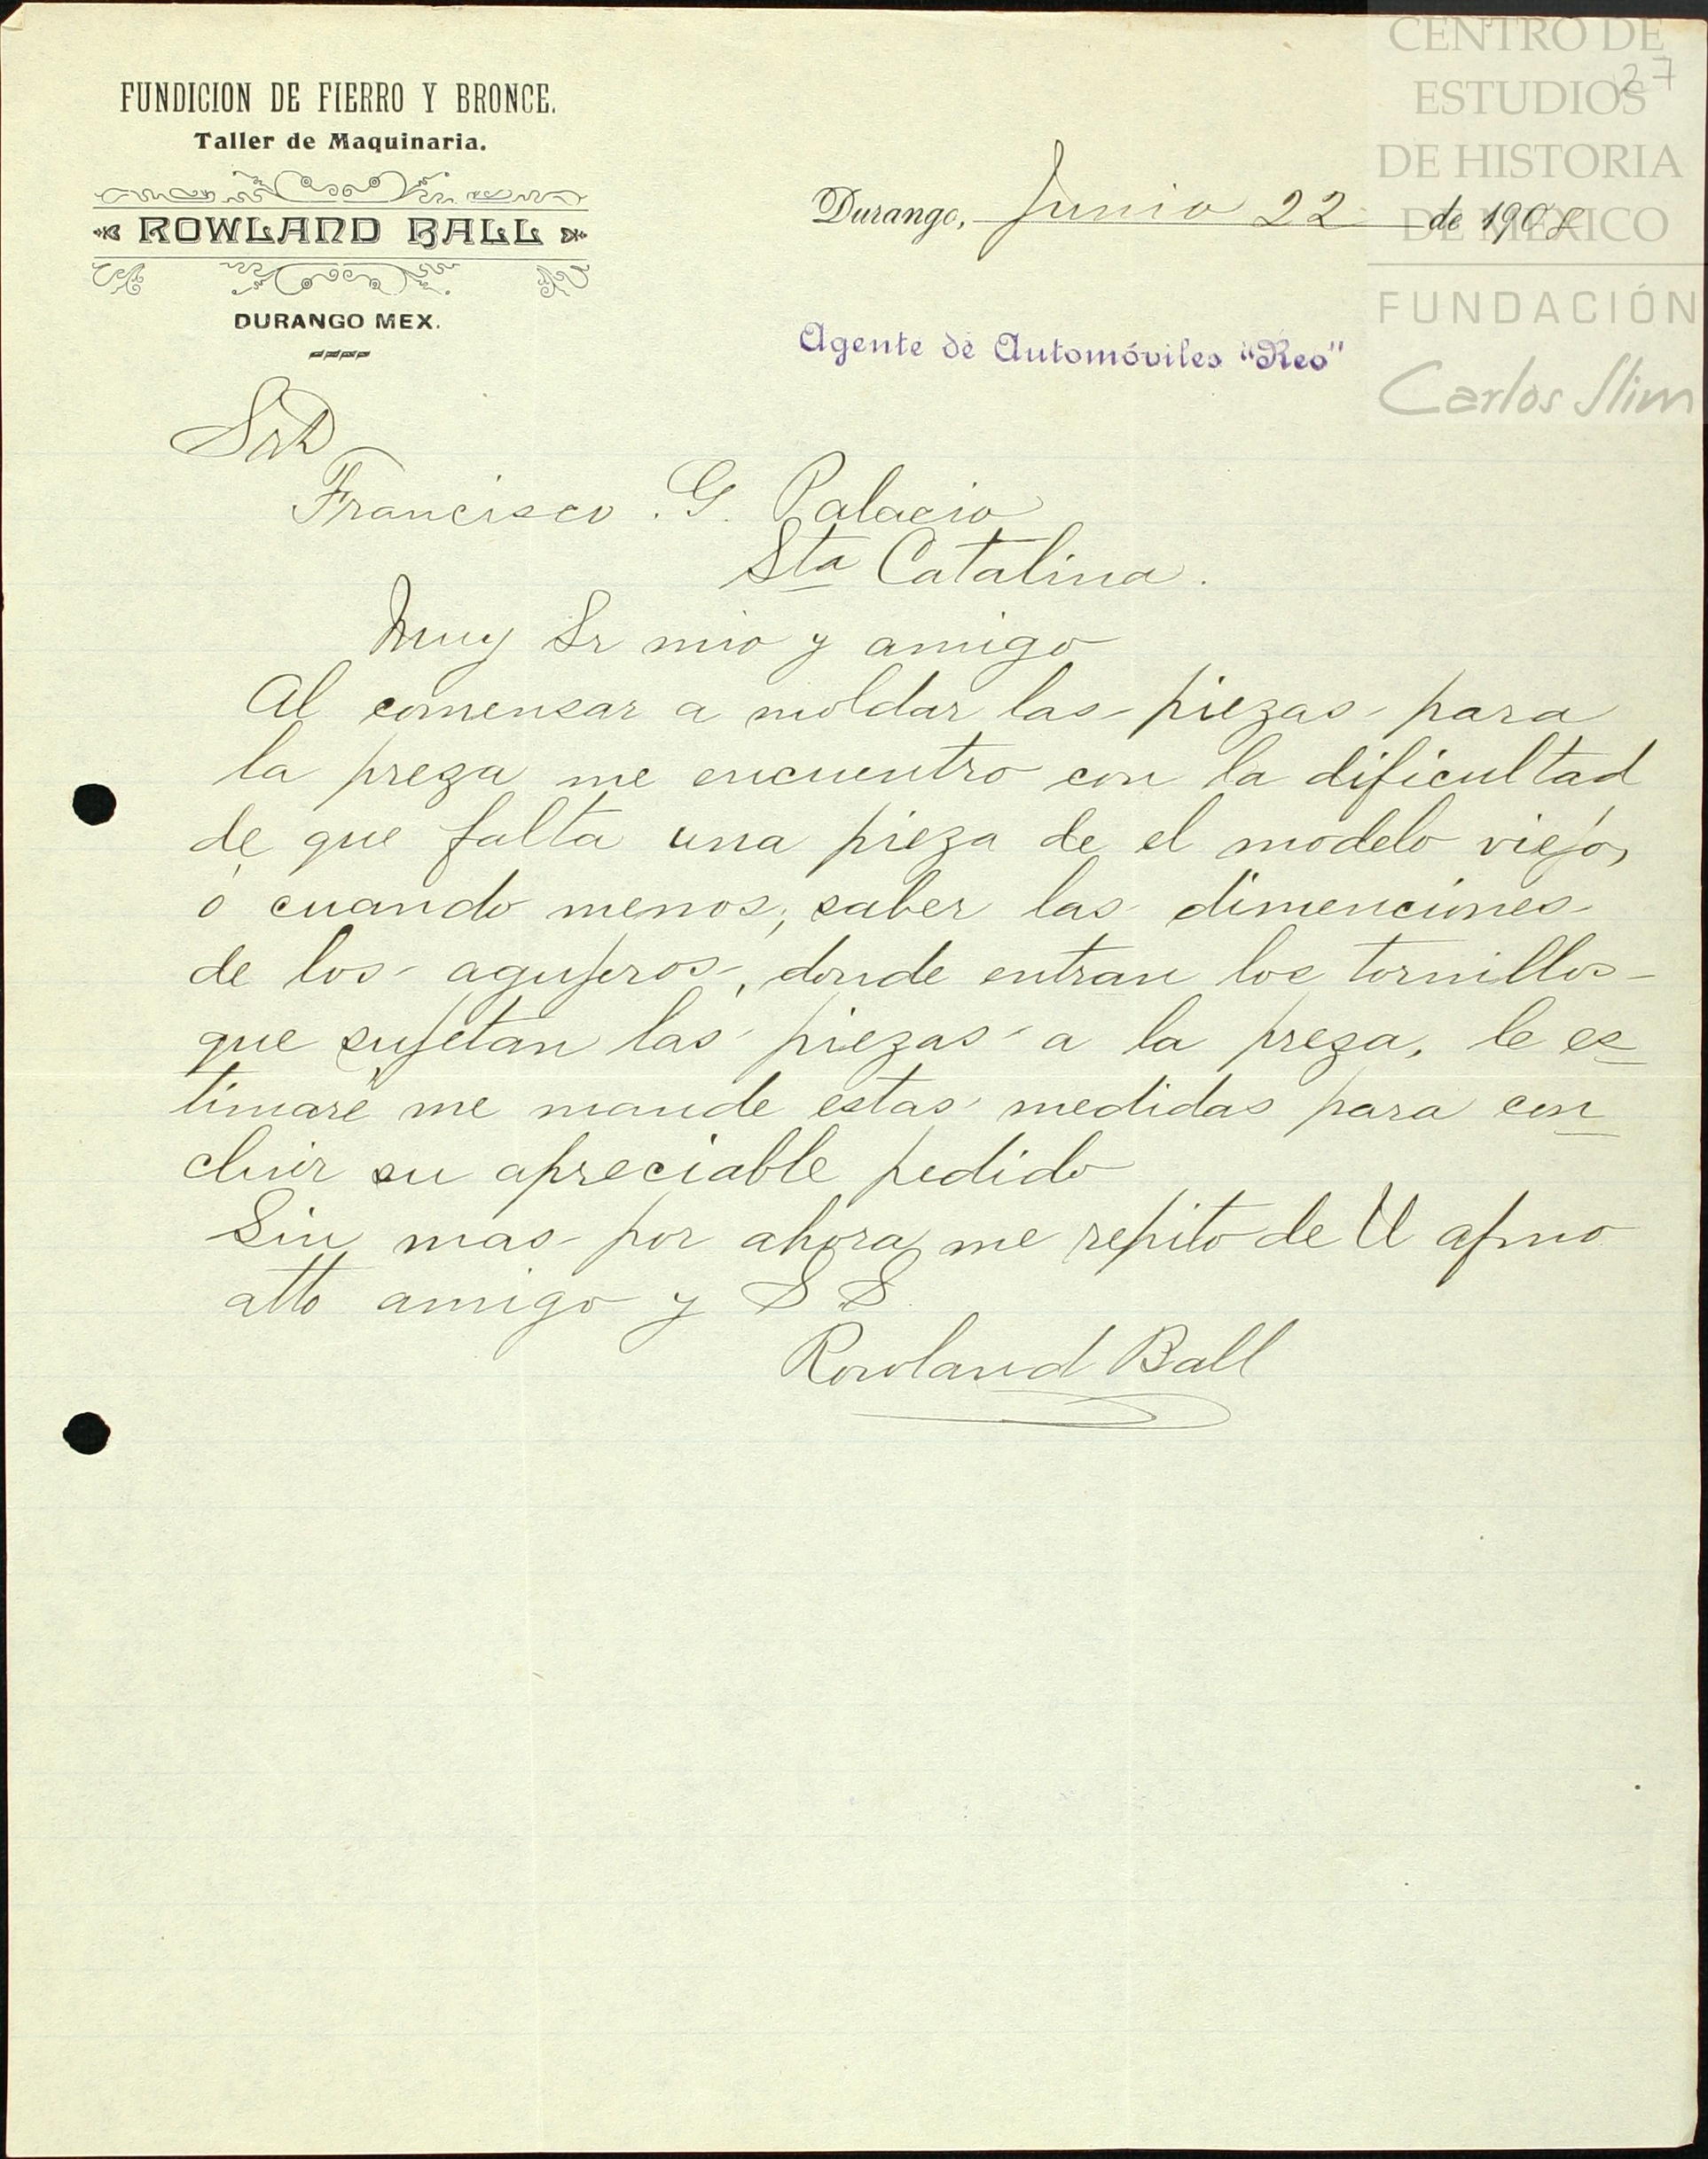 FUNDICION DE FIERRO Y BRONCE.
Taller de Maquinaria.
ROWLAND BALL
DURANGO MEX.
CENTRO DE
ESTUDIOS
DE HISTORIA
DE MÉXICO
FUNDACIÓN
Carlos Slim
27
Durango, Junio 22 de 1908
Agente de Automóviles "Reo"
Sr D
Francisco. G. Palacio
Sta Catalina.
Muy Sr mio y amigo
Al comensar a moldar las piezas para
la preza me encuentro con la dificultad
de que falta una pieza de el modelo viejo,
ó cuando menos, saber las dimenciones
de los agujeros, donde entran los tornillos
que sujetan las piezas a la preza, le es
timaré me mande estas medidas para con
cluir su apreciable pedido
Sin mas por ahora me repito de U afmo
atto amigo y S S.
Rowland Ball